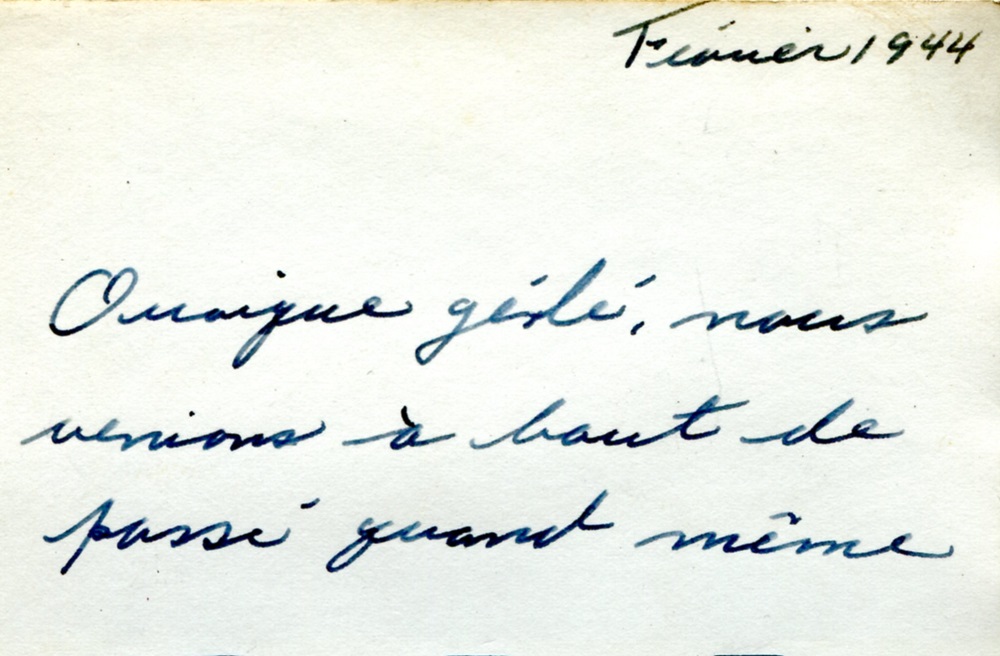 Février 1944
Quoique gélé, nous
venions à bout de
passé quand même